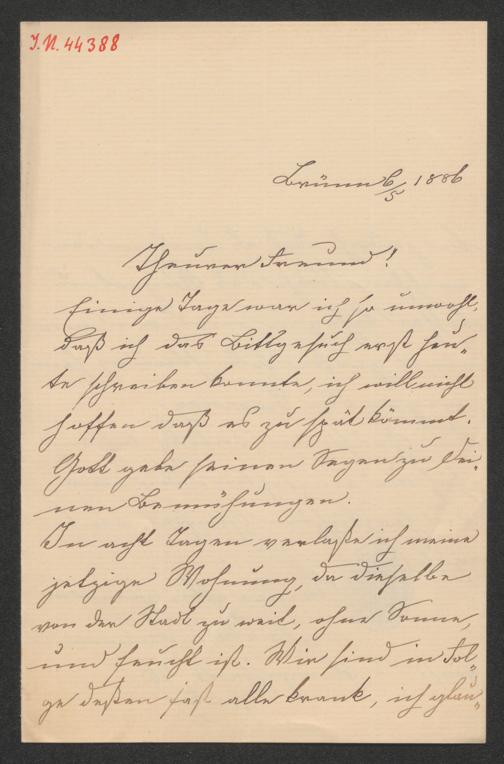 J.N. 44388
Brünn 6/5 1886
Theurer Freund!
Einige Tage war ich so unwohl,
daß ich das Bittgesuch erst heu„
te schreiben konnte, ich will nicht
hoffen daß es zu spät kömmt.
Gott gebe seinen Segen zu Dei„
nen Bemühungen.
In acht Tagen verlaße ich meine
jetzige Wohnung, da dieselbe
von der Stadt zu weit, ohne Sonne,
und feucht ist. Wir sind in Fol„
ge deßen fast alle krank, ich glau„